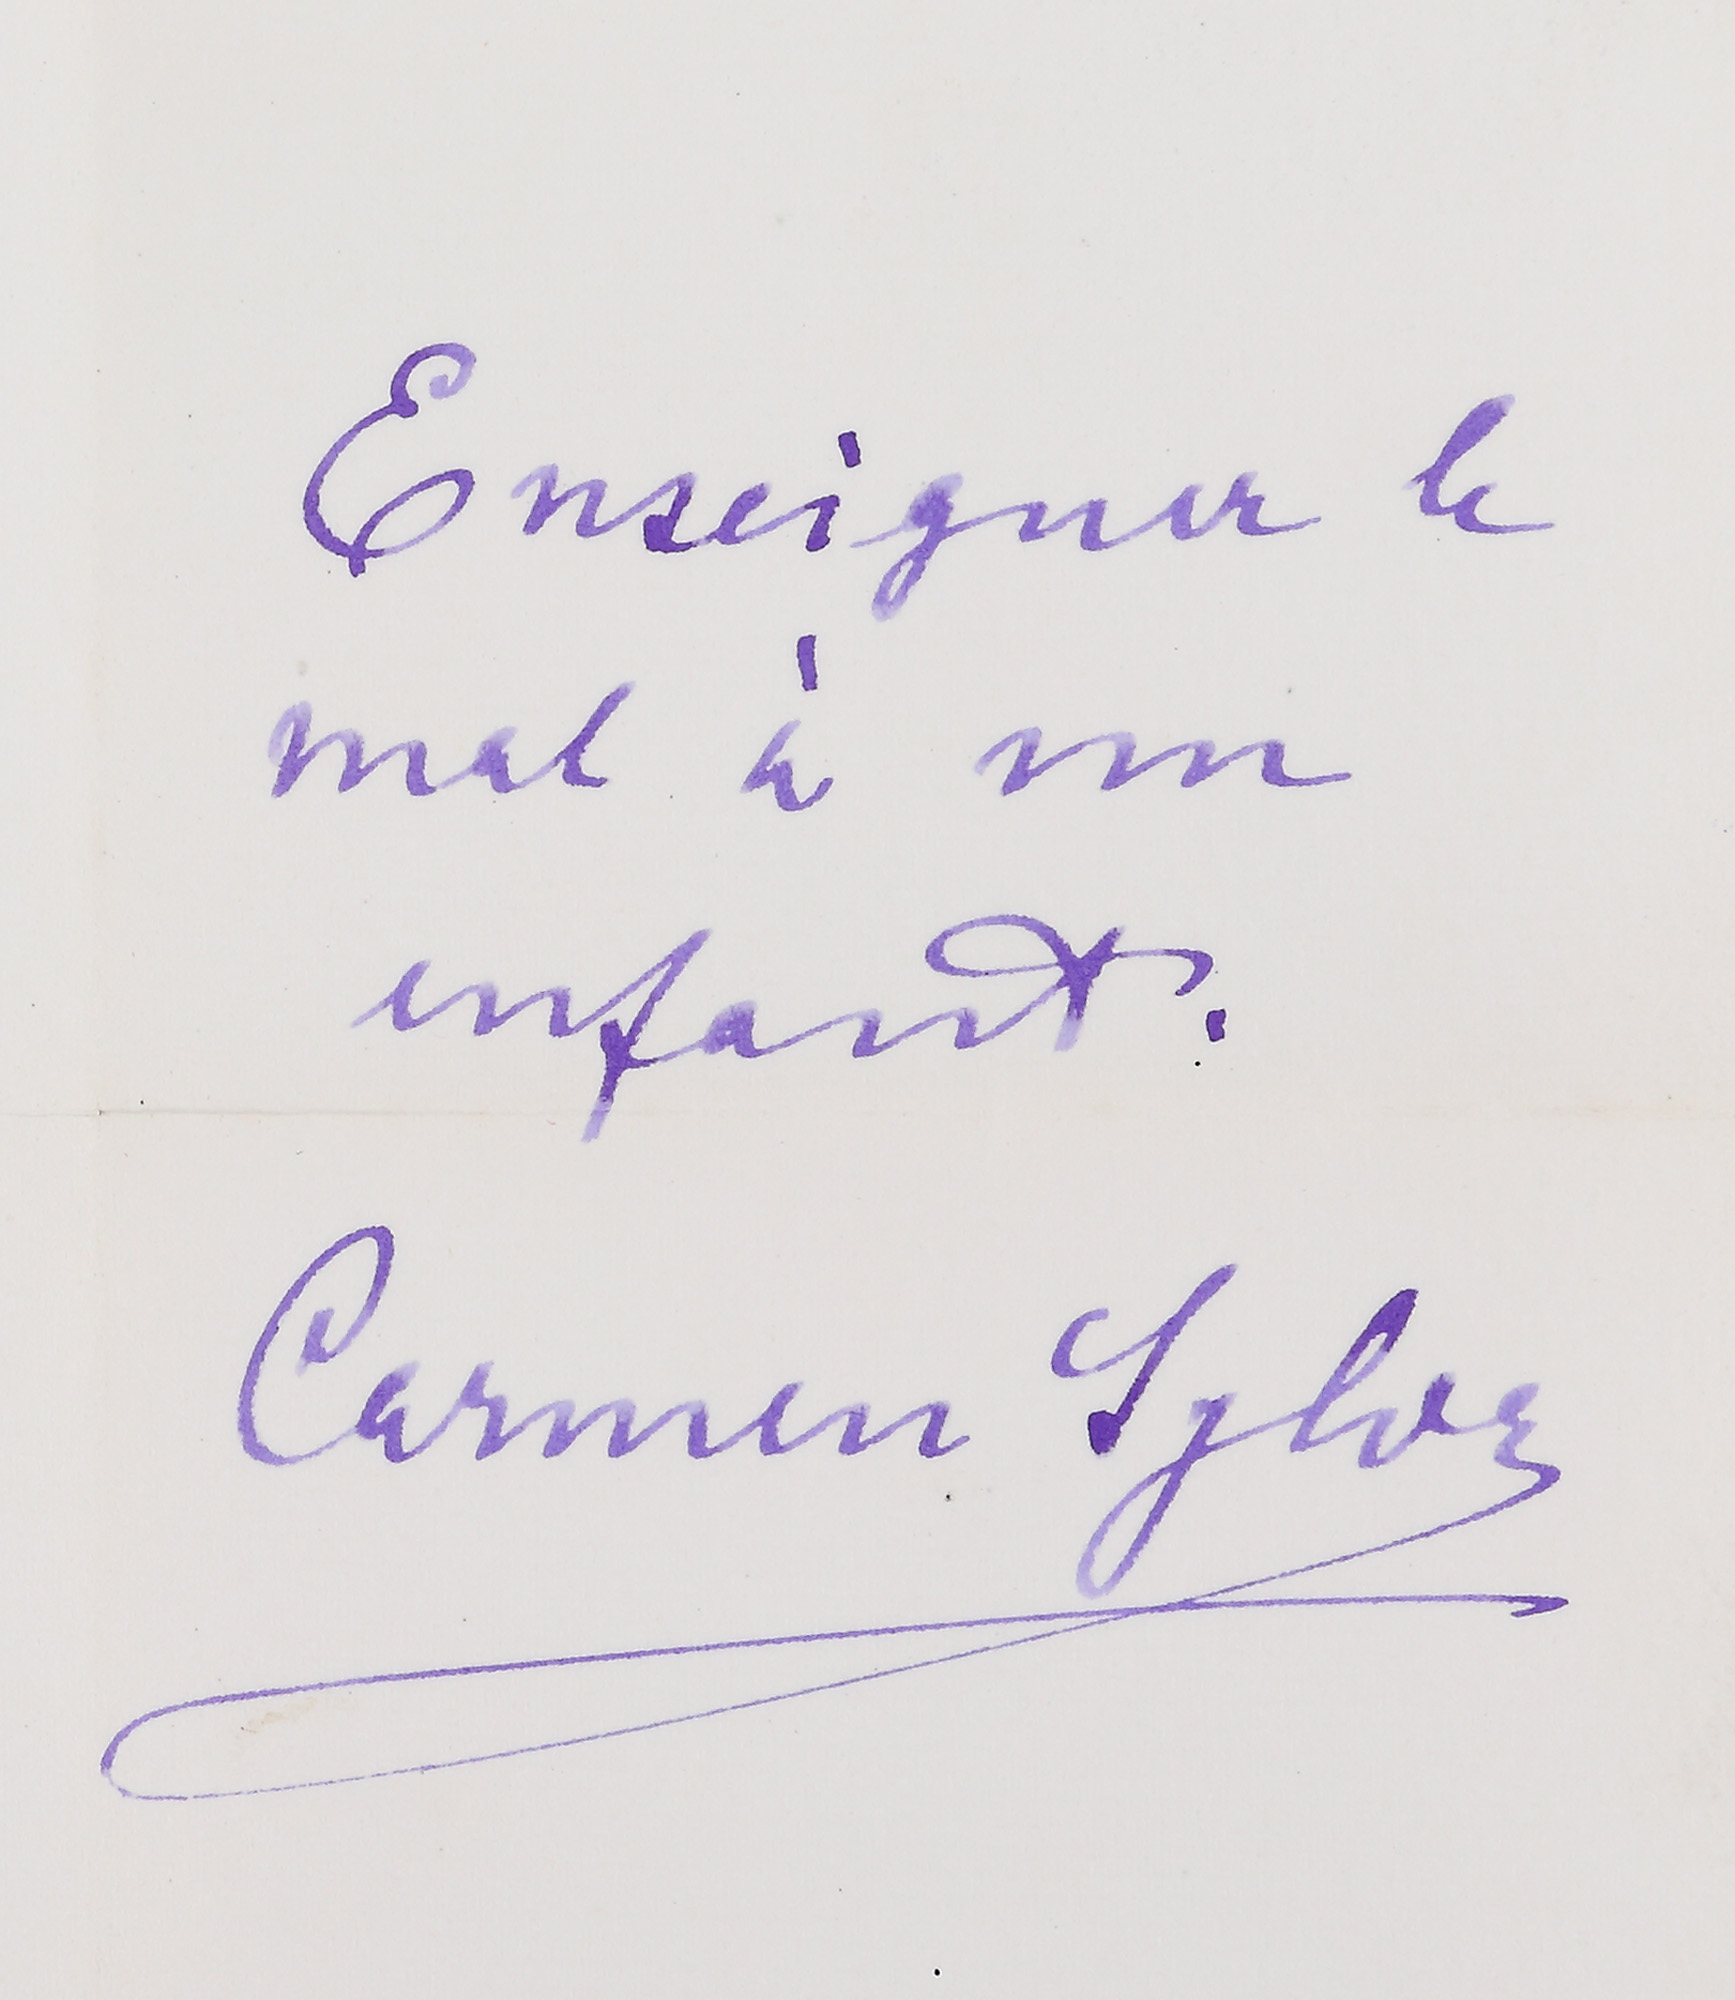 Enseigner le
mal à un
enfant.
Carmen Sylva